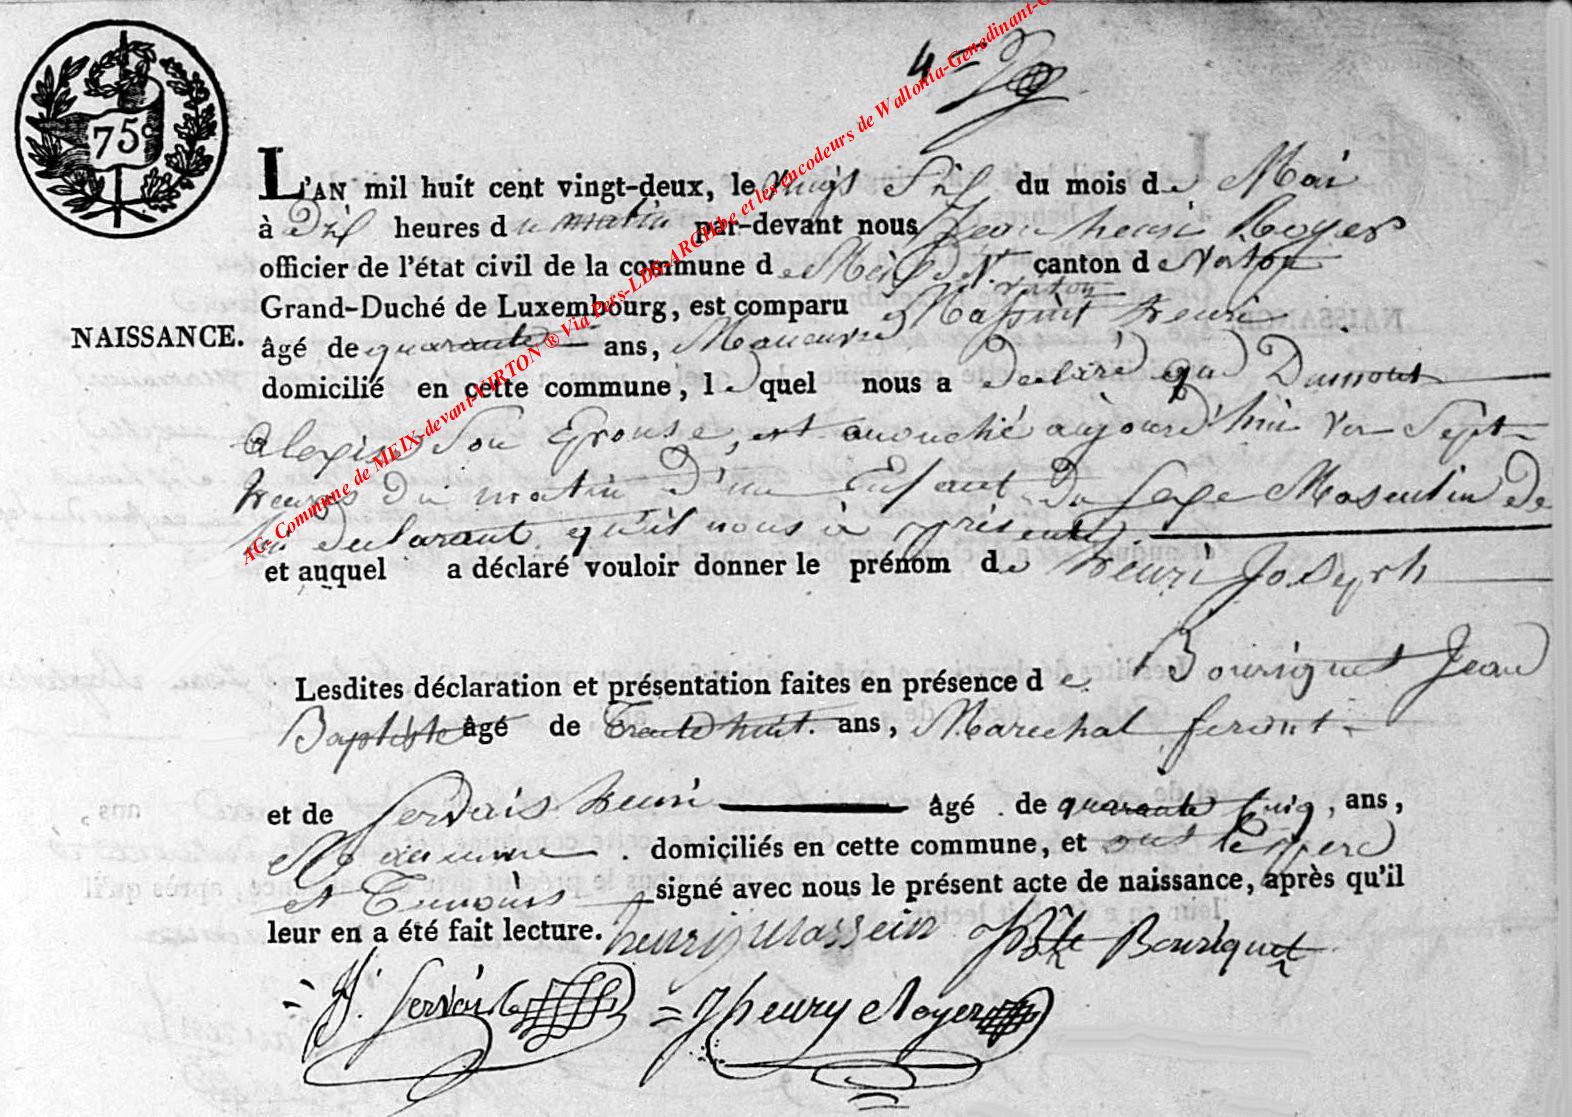 75c
L'AN mil huit cent vingt-deux, le Vingt Six du mois de Mai
à Dix heures du matin par-devant nous Jean henri Royer
officier de l'état civil de la commune de Meix dt Virton canton de Virton
Grand-Duché de Luxembourg, est comparu Massint henri
NAISSANCE.
âgé de quarante ans, Maneuvre
domicilié en cette commune, lequel nous a declaré que Dumont
alexise Son Epouse, est accouchée aujourd'hui ver Sept
heures du matin d'un Enfant du Sexe Masculin de
lui declarant, qu'il nous à présenté
et auquel a déclaré vouloir donner le prénom de henri Joseph
Lesdites déclaration et présentation faites en présence de Bouriquet Jean
Baptiste âgé de Trente huit ans, Marechal ferant
et de Servais henri âgé de quarante Cinq, ans,
Maneuvre domiciliés en cette commune, et ont le pere
et Temoins signé avec nous le présent acte de naissance, après qu'il
leur en a été fait lecture. henri massein JBte Bouriquet
H. Servais Jhenry Royer
AC- Commune de MEIX-devant-VIRTON ® Via Pers-LDS-ARCH.be et les encodeurs de Wallonia-Genedinant-G